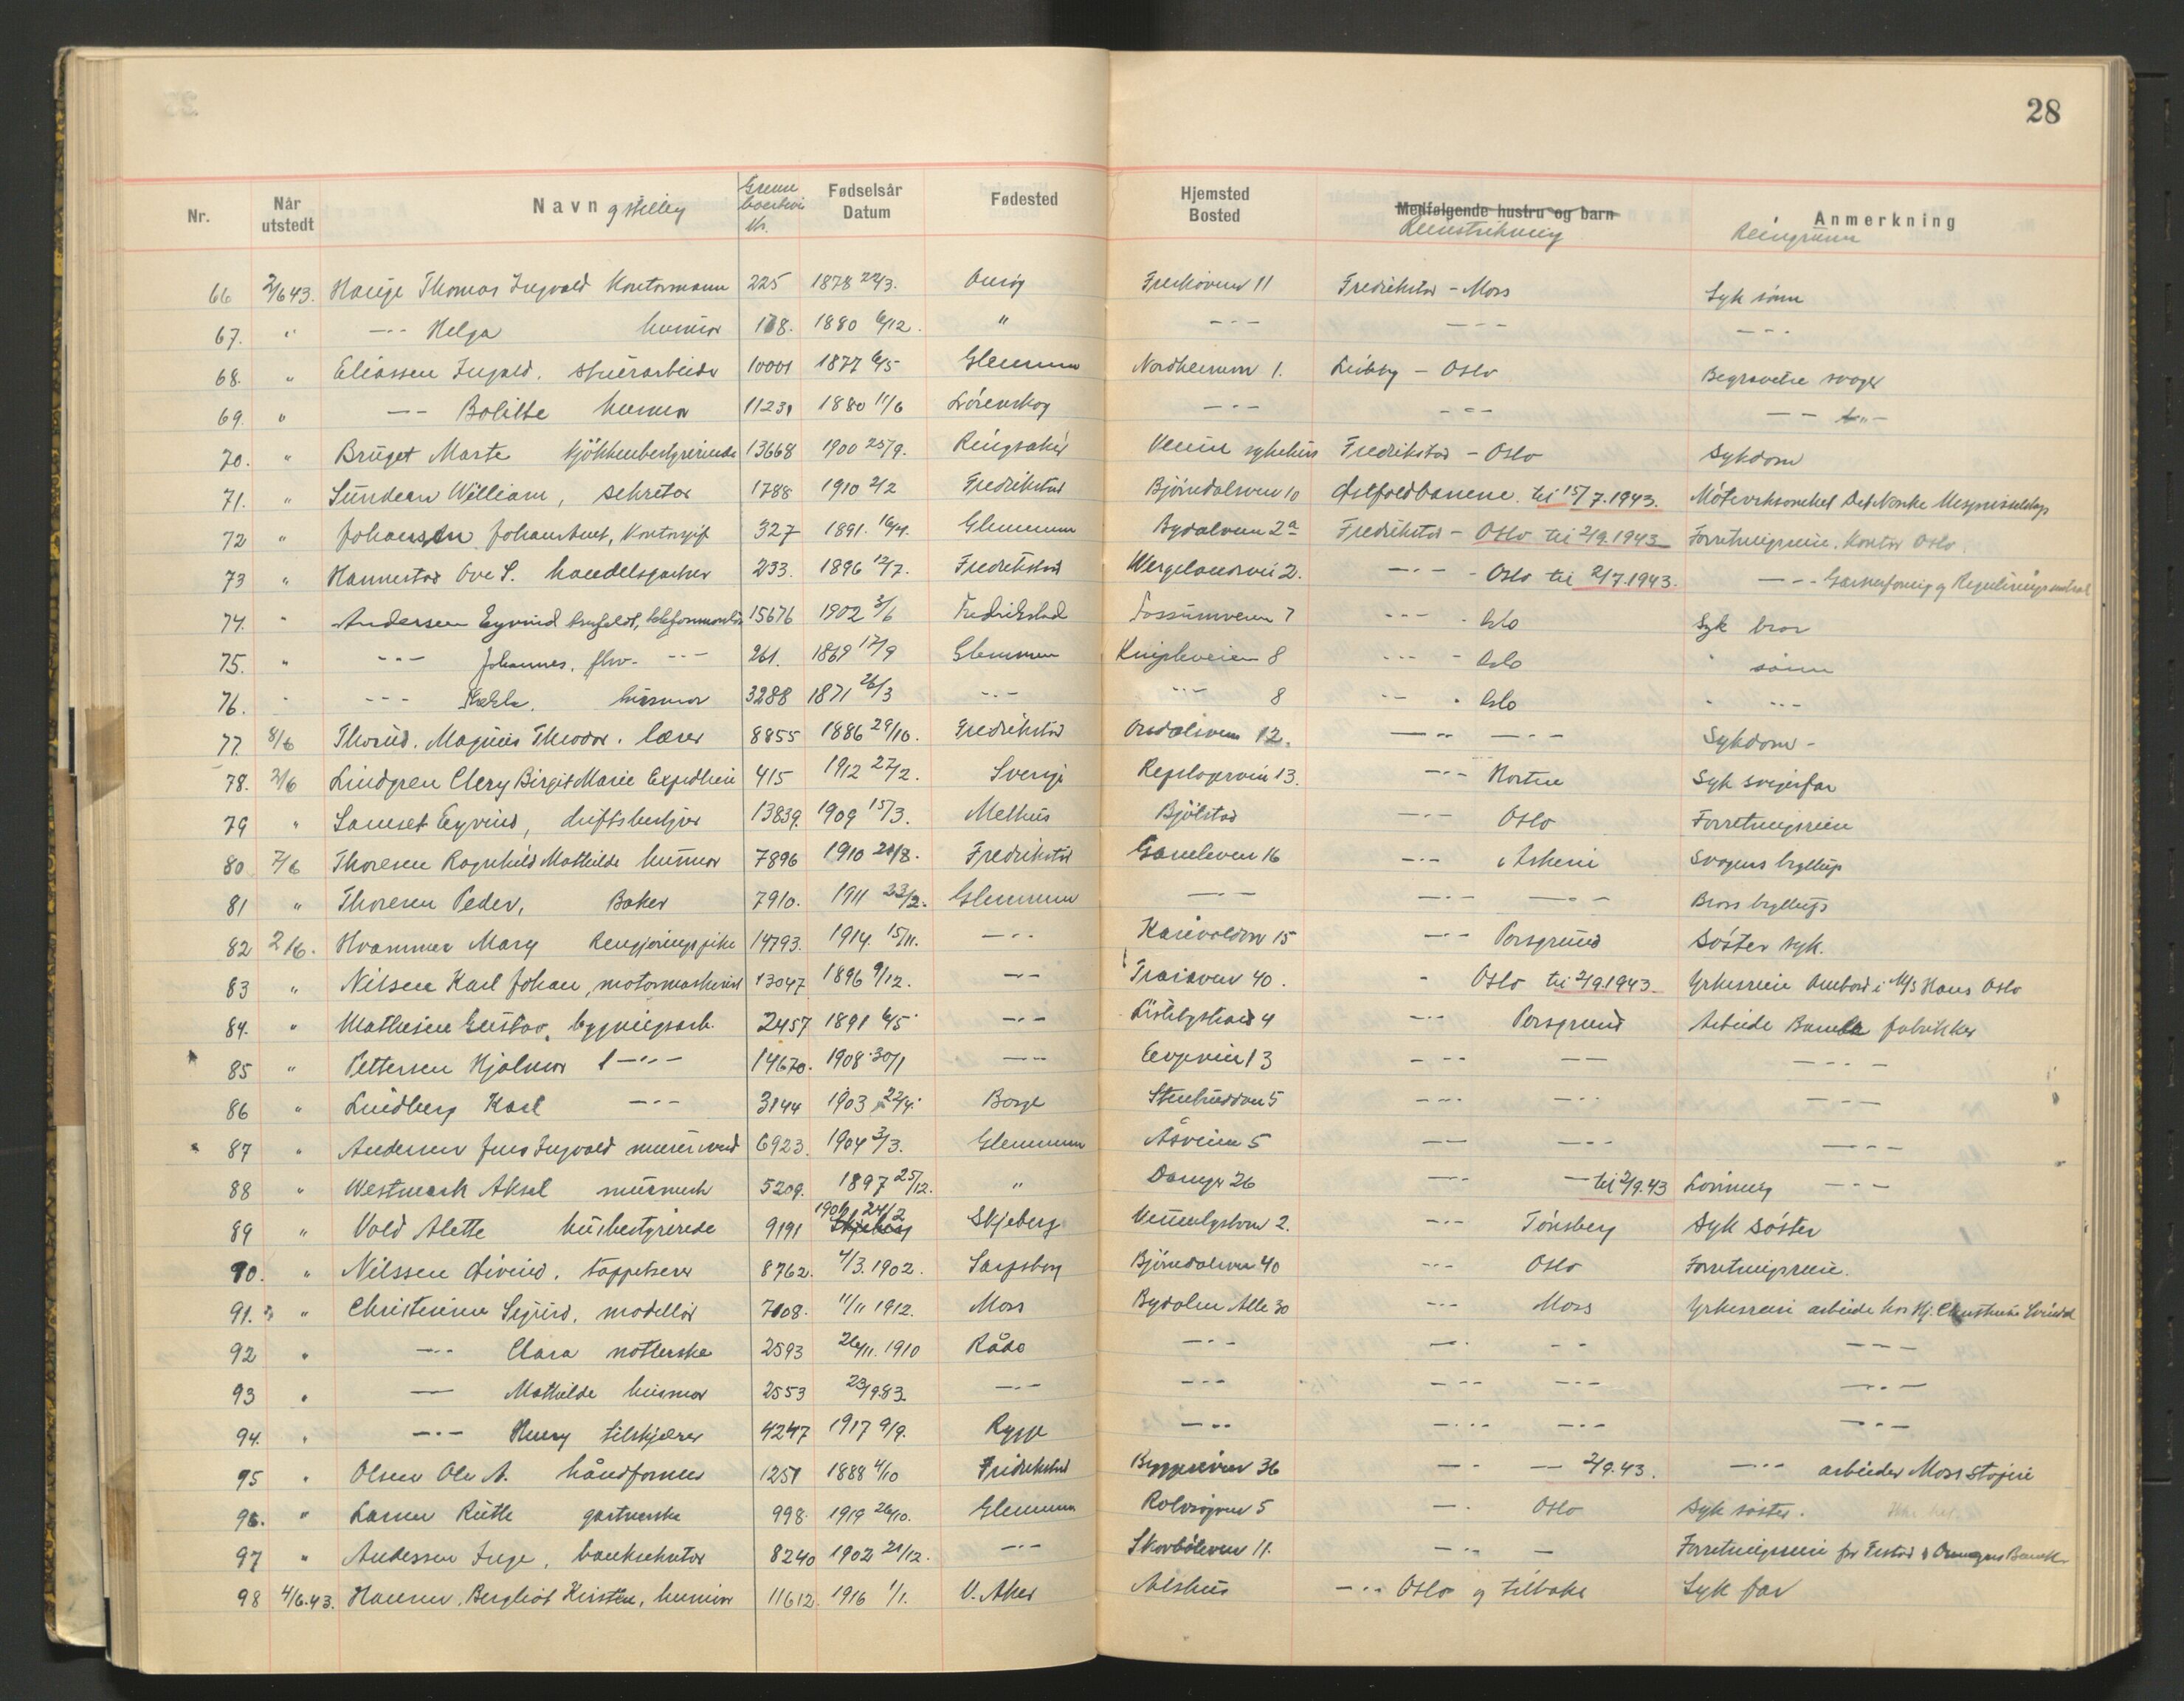 28
Nr. Når utstedt Navn og stilling Grense boerbevis Nr. Fødselsår Datum Fødested Hjemsted Bosted Medfølgende hustru og barn Reisestrekning Anmerkning Reisegrunn
66 2/6 43. Hauge Thomas Ingvald Kontormann 225 1878 22/3. Onsøy 11 Fredrikstad - Moss Syk sønn
67. " -"- Helga husmor 178. 1880 6/12. " -"- -"- -"-
68. " Eliassen Ingvald. 10001 1877 6/5 Glemmen Nordheimvn 1. Lisleby - Oslo Begravelse svoger
69. " -"- Bolilte husmor 11231 1880 11/6 Lörenskog -"- -"- -"-
70. " Bruget Marte kjökkenbestyrerinde 13668 1900 25/9. Ringsaker Veum sykehus Fredrikstad - Oslo Sykdom
71. " Sundean William, sekretær 1788 1910 2/2 Fredrikstad Bjørndalsveien 10 Østfoldbanene til 15/7.1943. Møtevirksomhet Det Norske Misjonsselskap
72 " Johansen Johan, Kontorsjef 327 1891. 16/4. Glemmen Bydalveien 2a Fredrikstad - Oslo til 2/9.1943 Forretningsreise. Kontor Oslo.
73 " Hannestad Ove S. handelsgartner 233. 1896 12/7. Fredrikstad Wergelandsvei 2. -"- - Oslo til 2/7.1943. -"- Gartnerforening og Reguleringssentral
74. " Andersen Eyvind telefonmontør 15676 1902 3/6 Fredrikstad Fossumveien 7 -"- - Oslo Syk bror
75. " -"- Johannes, fhv. -"- 261. 1869 17/9 Glemmen Knipleveien 8 -"- - Oslo " sønn
76. " -"- Thekla. husmor 3288 1871 26/3 -"- -"- 8 -"- - Oslo " -"-
77. 8/6 Thorud. Magnus Theodor. lærer 8855 1886 29/10. Fredrikstad 12. -"- -"- Sykdom -
78. 2/6 Lindgren Clery Birgit Marie 415 1912 27/2. Sverige Repslagerveien 13. -"- Horten Syk svigerfar
79 " Samset Eyvind, driftsbestyrer 13839. 1909 15/3. Melhus Bjölstad -"- Oslo Forretningsreise
80 7/6 Thoresen Ragnhild Mathilde husmor 7896 1910 20/8. Fredrikstad Gamleveien 16 -"- Askim Svogers bryllup
81 " Thoresen Peder, Baker 7910. 1911 23/2. Glemmen -"- -"- -"- Brors bryllup
82 2/6. Hvammer Mary Rengjøringspike 14793. 1914. 15/11. -"- 15 -"- Porsgrund Søster syk.
83 " Nilsen Karl Johan, motormaskinist 13047 1896 9/12. -"- Traraveien 40. " Oslo til 2/9.1943 Yrkesreise Ombord i M/S Hans Oslo
84. " Mathisen Gustav, bygningsarb. 2457 1891 6/5 -"- 4 -"- Porsgrund Arbeide Bamble fabrikker
85 " Pettersen Hjalmar -"- 14670. 1908 30/1 -"- 13 -"- -"- -"-
86 " Lindberg Karl -"- 3144 1903 22/4. Borge 5 -"- -"- -"-
87 " Andersen Jens Ingvald 6923. 1904 3/3. Glemmen Åsveien 5 -"- -"- -"-
88 " Westmark Aksel 5209. 1897 25/12. " Damyr 26 -"- - til 2/9.43 -"-
89 " Vold Alette husbestyrinde 9191 24/2 Skjeberg 2. -"- Tönsberg Syk søster
90. " Nilssen Øivind. tappetserer 8762. 4/3. 1902. Sarpsborg Bjørndalsveien 40 -"- Oslo Forretningsreise.
91. " Christensen Sigurd, modellør 7108. 11/11 1912. Moss Bydalen Alle 30 -"- Moss Yrkesreise arbeide hos Hj.
92 " -"- Clara 2593 26/11. 1910 Råde -"- -"- -"- -"-
93 " -"- Mathilde husmor 2553 23/9.83. -"- -"- -"- -"- -"-
94. " -"- Henry tilskjærer 4247 1917 9/9. Rygge -"- -"- -"- -"-
95 " Olsen Ole A. håndformer 1251 1888 4/10 Fredrikstad 36 -"- -"- 2/9.43. -"- arbeider Moss Støperi
96. " Larsen Ruth gartnerske 998. 1919 26/10. Glemmen Rolvsøyveien 5 -"- Oslo Syk søster.
97 " Andessen Inge, banksekretær 8240 1902 21/12. -"- Skovbøleveien 11. -"- - Forretningsreise for
98 4/6.43. Hansen, Bergliot Kirsten, husmor 11612. 1916 1/1. V. Aker Alshus -"- Oslo og tilbake Syk far